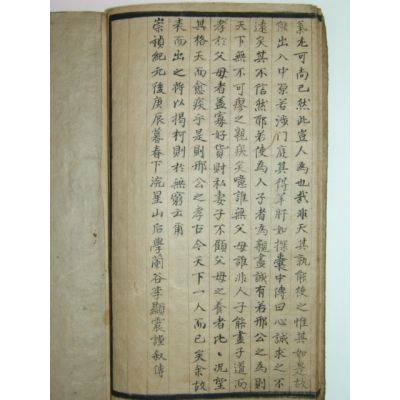 篤尤可尚已然此豈人為也哉非天其孰能使之惟其如是故
能出入中原若涉門庭其得羊肝如探囊中傳曰心誠求之不
遠矣其不信然耶若使為人子者為親盡誠有若邢公之為則
天下無不可瘳之親疾矣噫誰無父母誰非人子能盡子道而
孝於父母者盖寡好貨財私妻子不顧父母之養者比比況望
其格天而愈疾乎是則邢公之孝古今天下一人而已矣余故
表而出之將以揭柯則於無窮云爾
崇禎紀元後庚辰暮春下浣星山后學蘭谷李顯震謹叙傳